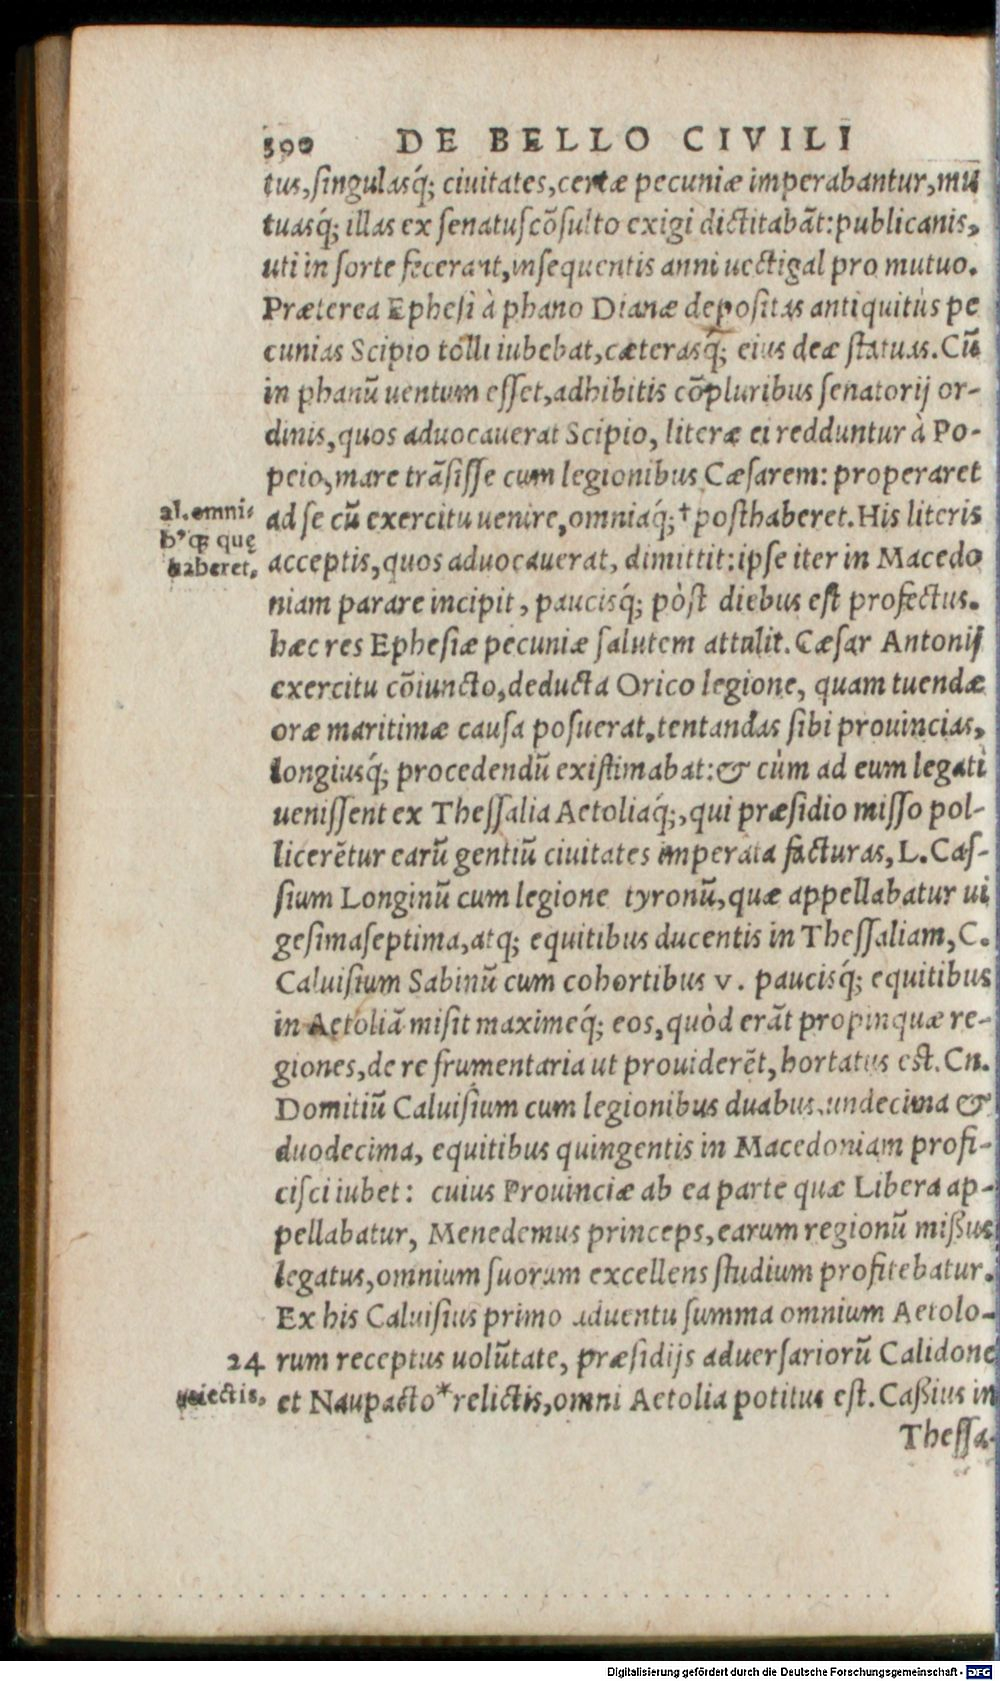 390 DE BELLO CIVILI
tus,ſingulasq́; ciuitates,certæ pecuniæ imperabantur,mu
tuasq́; illas ex ſenatuſcõſulto exigi dictitabãt:publicanis,
uti in ſorte fecerant,inſequentis anni uectigal pro mutuo.
Præterea Epheſi à phano Dianæ depoſitas antiquitùs pe
cunias Scipio tolli iubebat,cæterasq́; eius deæ ſtatuas.Cũ
in phanũ uentum eſſet,adhibitis cõpluribus ſenatorij or-
dinis,quos aduocauerat Scipio, literæ ei redduntur à Po-
peio,mare trãſiſſe cum legionibus Cæſarem: properaret
al.omni-
ad ſe cũ exercitu uenire,omniaq́;†poſthaberet.His literis
bꝰ q̃ quę
acceptis,quos aduocauerat, dimittit:ipſe iter in Macedo
haberet.
niam parare incipit, paucisq́; pòſt diebus eſt profectus.
hæc res Epheſiæ pecuniæ ſalutem attulit. Cæſar Antonij
exercitu cõiuncto,deducta Orico legione, quam tuendæ
oræ maritimæ cauſa poſuerat,tentandas ſibi prouincias,
longiusq́; procedendũ exiſtimabat:& cùm ad eum legati
ueniſſent ex Theſſalia Aetoliaq́;,qui præſidio miſſo pol-
licerẽtur earũ gentiũ ciuitates imperata facturas, L.Caſ-
ſium Longinũ cum legione tyronũ,quæ appellabatur ui
geſimaſeptima,atq; equitibus ducentis in Theſſaliam, C.
Caluiſium Sabinũ cum cohortibus v. paucisq́; equitibus
in Aetoliã miſit maximeq́; eos,quòd erãt propinquæ re-
giones,de re frumentaria ut prouiderẽt, hortatus eſt. Cn.
Domitiũ Caluiſium cum legionibus duabus,undecima &
duodecima, equitibus quingentis in Macedoniam profi-
ciſci iubet: cuius Prouinciæ ab ea parte quæ Libera ap-
pellabatur, Menedemus princeps,earum regionũ miſſus
legatus,omnium ſuorum excellens ſtudium profitebatur.
Ex his Caluiſius primo aduentu ſumma omnium Aetolo-
24 rum receptus uolũtate, præſidijs aduerſariorũ Calidone
reiectis. et Naupacto*relictis,omni Aetolia potitus eſt.Caßius in
Theſſa-
Digitalisierung gefördert durch die Deutsche Forschungsgemeinschaft - DFG